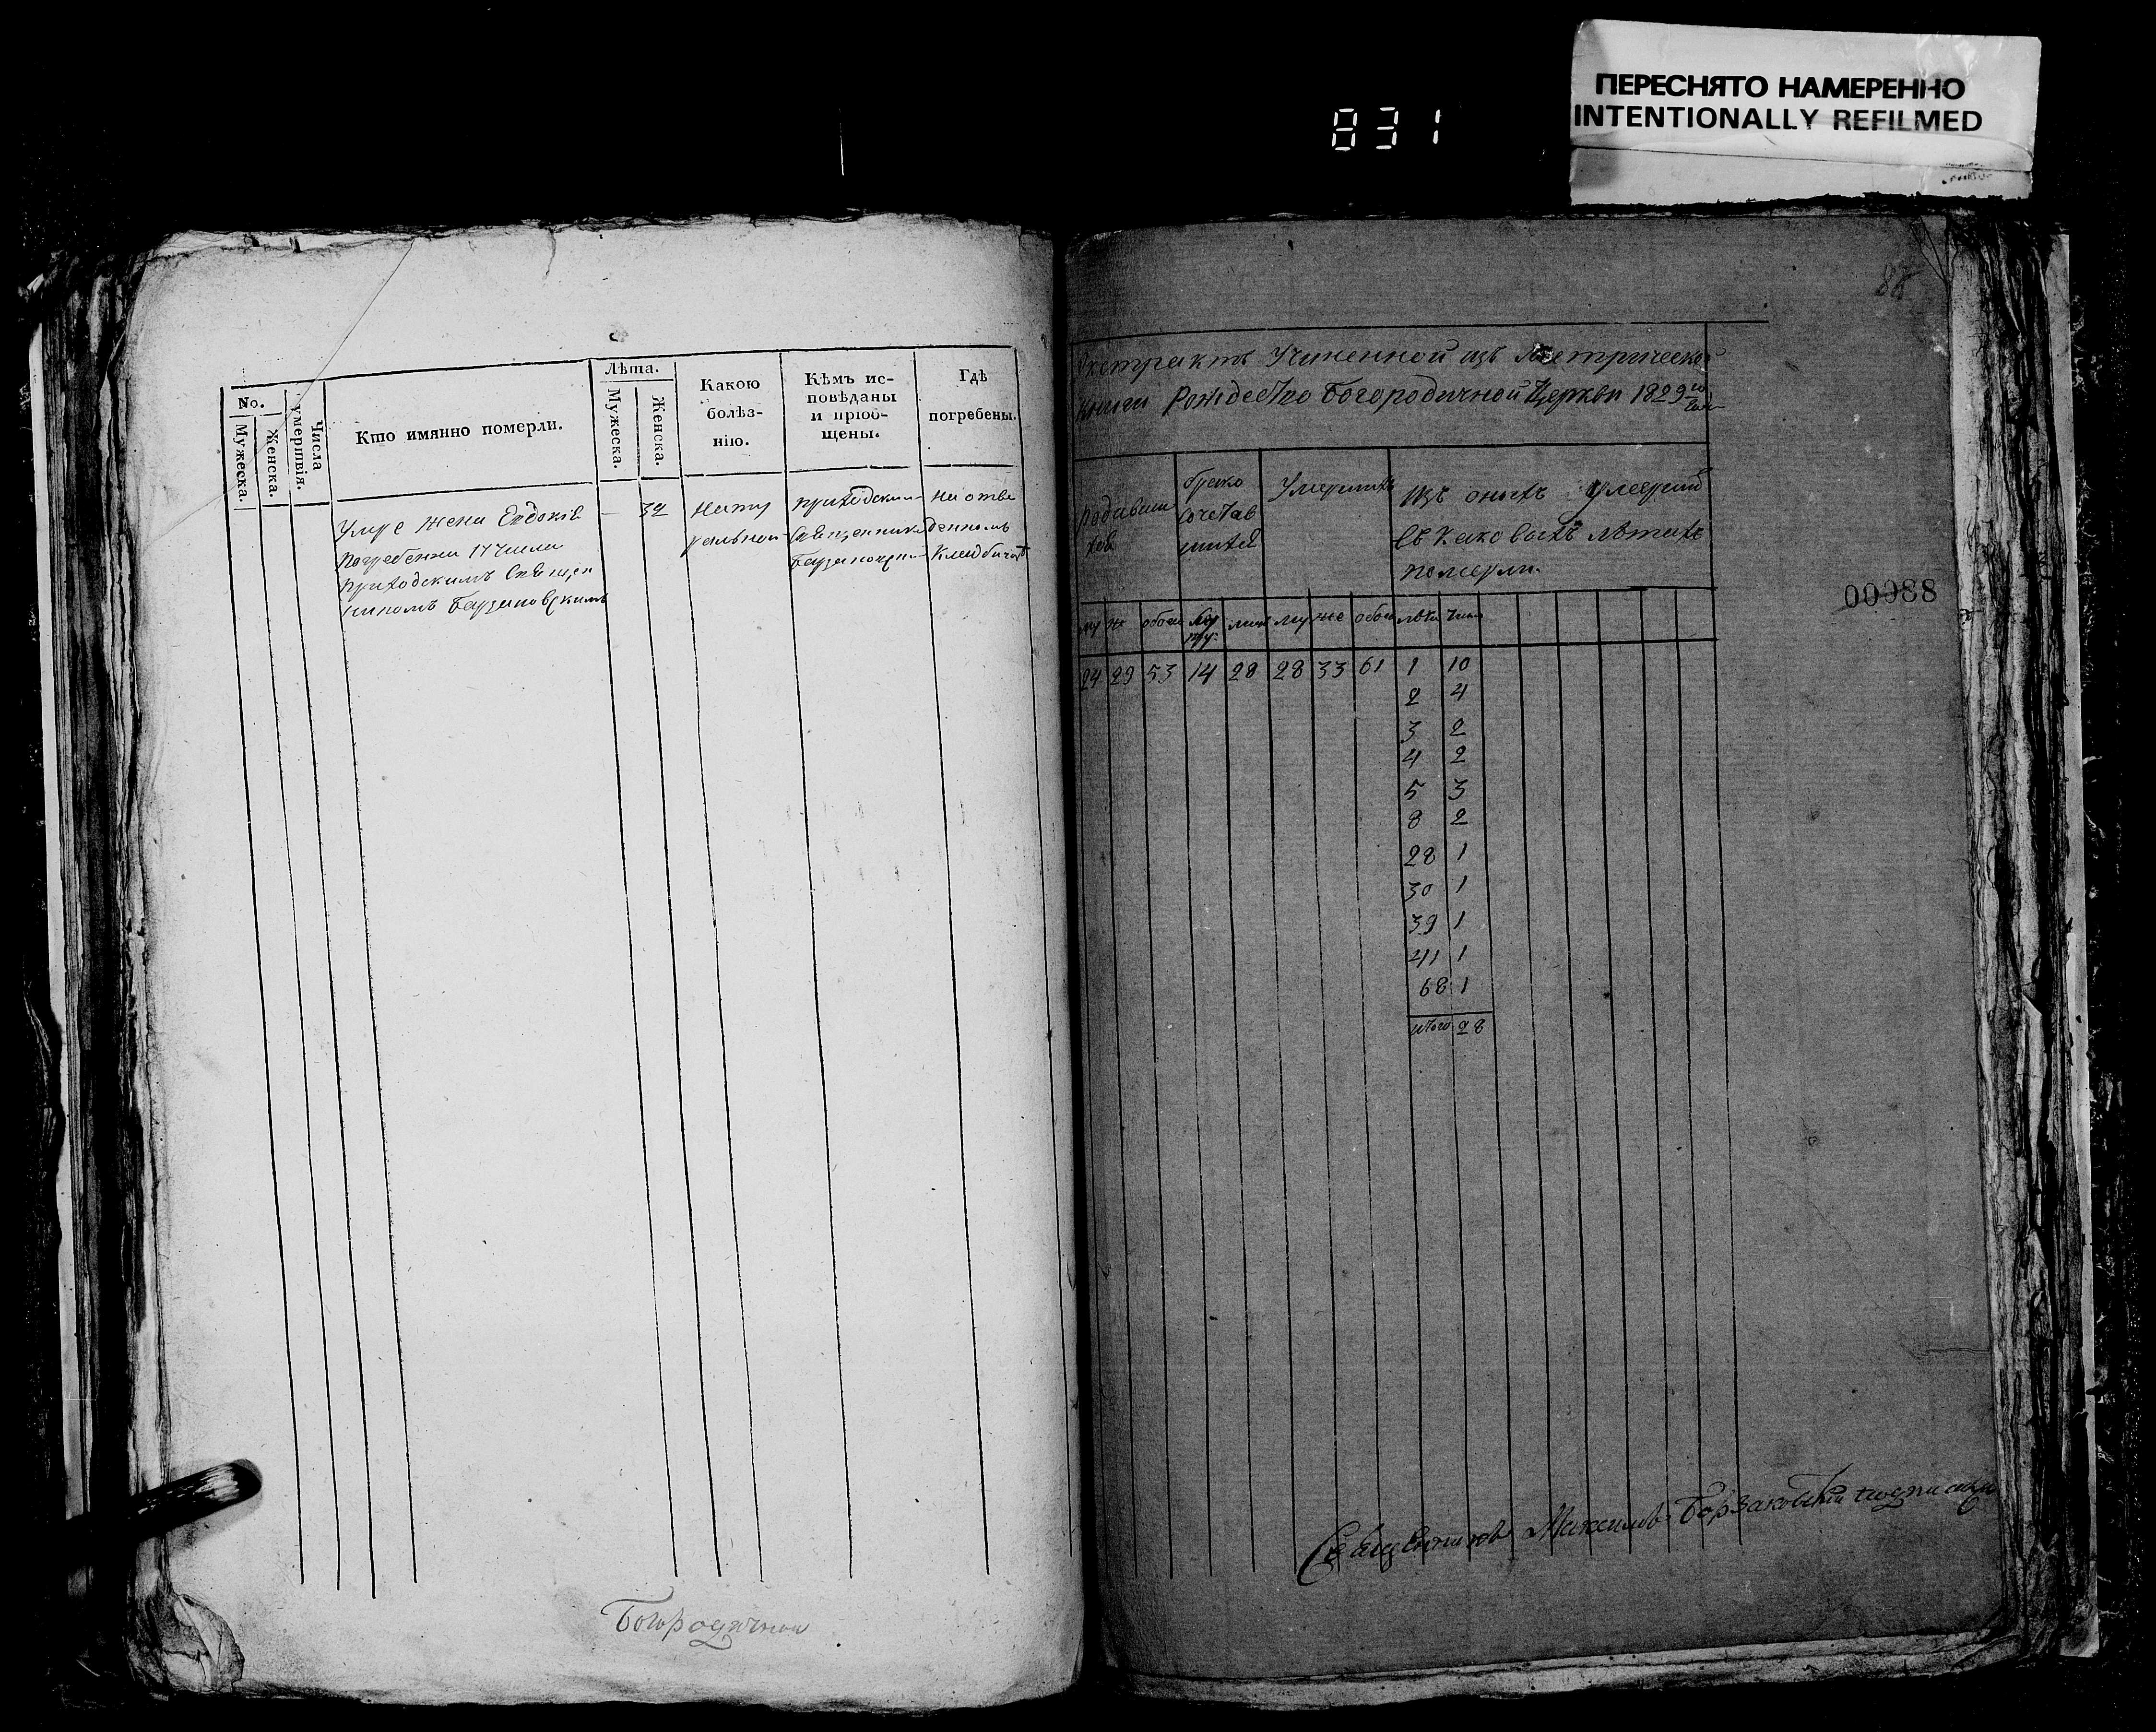 ПЕРЕСНЯТО НАМЕРЕННО
INTENTIONALLY REFILMED
831
No.
Мужеска.
Женска.
Числа умертвія.
Кто имянно померли.
Лѣта.
Мужеска.
Женска.
Какою
болѣз-
нію.
Кѣмъ ис-
повѣданы
и пріоб-
щены.
Гдѣ
погребены.
Умре жена Евдокія
погребенна 17 числа
приходскимъ Священ
никомъ
— 32
Натур
альной
приходским
Священником
На отве
денномъ
Кладбищѣ
Богородичной
88
Екстрактъ Учиненной изъ Метрической
книги Рождество Богородичной Церкви 1829го года
Родивши
хся
брако
сочетав
шихся
Умершихъ
Изъ оныхъ умерши
въ каковыхъ лѣтахъ
померли.
му же обоего му же обоего лѣта число
24 29 53 14 28 28 33 61 1 10
2 4
3 2
4 2
5 3
8 2
28 1
30 1
39 1
41 1
68 1
итого 28
00088
Священникъ Максимъ Борзаковскій